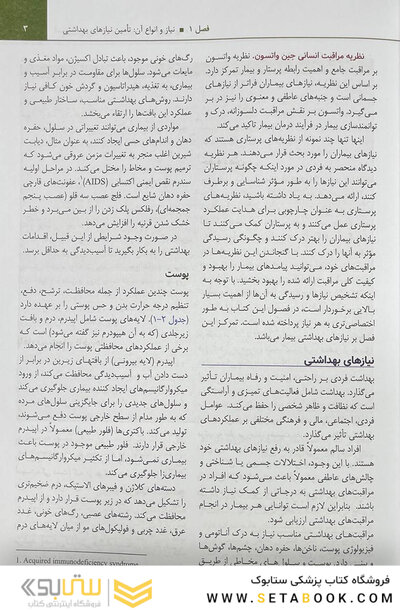 فصل ۱ • نیاز و انواع آن: تأمین نیازهای بهداشتی
۳
نظریه مراقبت انسانی جین واتسون. نظریه واتسون
بر مراقبت جامع و اهمیت رابطه پرستار و بیمار تمرکز دارد.
بر اساس این نظریه، نیازهای بیماران فراتر از نیازهای
جسمانی است و جنبه‌های عاطفی و معنوی را نیز در بر
می‌گیرد. واتسون بر نقش مراقبت دلسوزانه، درک و
توانمندسازی بیمار در فرآیند درمان بیمار تاکید می‌کند.
اینها تنها چند نمونه از نظریه‌های پرستاری هستند که
نیازهای بیماران را مورد بحث قرار می‌دهند. هر نظریه
دیدگاه منحصر به فردی در مورد اینکه چگونه پرستاران
می‌توانند این نیازها را به طور مؤثر شناسایی و برطرف
کنند، ارائه می‌دهد. به یاد داشته باشید، نظریه‌های
پرستاری به عنوان چارچوبی برای هدایت عملکرد
پرستاری عمل می‌کنند و به پرستاران کمک می‌کنند تا
نیازهای بیماران را بهتر درک کنند و چگونگی رسیدگی
مؤثر به آنها را درک کنند. با گنجاندن این نظریه‌ها در
مراقبت‌های خود، می‌توانید پیامدهای بیمار را بهبود و
کیفیت کلی مراقبت ارائه شده را بهبود بخشید. با توجه به
اینکه تشخیص نیازها و رسیدگی به آن‌ها از اهمیت بسیار
بالایی برخوردار است، در فصول این کتاب به طور
اختصاصی‌تری به هر نیاز پرداخته شده است. تمرکز این
فصل بر نیازهای بهداشتی بیمار می‌باشد.
نیازهای بهداشتی
بهداشت فردی بر راحتی، امنیت و رفاه بیماران تأثیر
می‌گذارد. بهداشت شامل فعالیت‌های تمیزی و آراستگی
است که نظافت و ظاهر شخصی را حفظ می‌کند. عوامل
فردی، اجتماعی، مالی و فرهنگی مختلفی بر عملکردهای
بهداشتی تأثیر می‌گذارد.
افراد سالم معمولاً قادر به رفع نیازهای بهداشتی خود
هستند. با این وجود، اختلالات جسمی یا شناختی و
چالش‌های عاطفی معمولاً باعث می‌شود که افراد در
مراقبت‌های بهداشتی به درجاتی از کمک نیاز داشته
باشند. بنابراین لازم است توانایی هر بیمار در انجام
مراقبت‌های بهداشتی ارزیابی شود.
مراقبت‌های بهداشتی مناسب نیاز به درک آناتومی و
فیزیولوژی پوست، ناخن‌ها، حفره دهان، چشم‌ها، گوش‌ها
رگ‌های خونی موجود، باعث تبادل اکسیژن، مواد مغذی و
مایعات می‌شود. سلول‌ها برای مقاومت در برابر آسیب و
بیماری، به تغذیه، هیدراتاسیون و گردش خون کافی نیاز
دارند. روش‌های بهداشتی مناسب، ساختار طبیعی و
عملکرد این بافت‌ها را ارتقاء می‌بخشد.
مواردی از بیماری می‌توانند تغییراتی در سلول، حفره
دهان و اندام‌های حسی ایجاد کنند، به عنوان مثال، دیابت
شیرین اغلب منجر به تغییرات مزمن عروقی می‌شود که
ترمیم پوست و مخاط را مختل می‌کند. در مراحل اولیه
سندرم نقص ایمنی اکتسابی (AIDS)¹، عفونت‌های قارچی
حفره دهان شایع است. فلج عصب سه قلو (عصب پنجم
جمجمه‌ای)، رفلکس پلک زدن را از بین می‌برد و خطر
خشک شدن قرنیه را افزایش می‌دهد.
در صورت وجود شرایطی از این قبیل، اقدامات
بهداشتی را به بکار بگیرید تا آسیب‌دیدگی به حداقل برسد.
پوست
پوست چندین عملکرد از جمله محافظت، ترشح، دفع،
تنظیم درجه حرارت بدن و حس پوستی را بر عهده دارد
(جدول ۲-۱). لایه‌های پوست شامل اپیدرم، درم و بافت
زیرجلدی (که به آن هیپودرم نیز گفته می‌شود) است که
برخی از عملکردهای محافظتی پوست را انجام می‌دهد.
اپیدرم (لایه بیرونی) از بافت‎های زیرین در برابر از
دست دادن آب و آسیب‌دیدگی محافظت می‌کند، از ورود
میکروارگانیسم‌های ایجاد کننده بیماری جلوگیری می‌کند
و سلول‌های جدیدی را برای جایگزینی سلول‌های مرده
که به طور مدام از سطح خارجی پوست دفع می‌شوند،
تولید می‌کند. باکتری‌ها (فلور طبیعی) معمولاً در اپیدرم
خارجی قرار دارند. فلور طبیعی موجود در پوست باعث
بیماری نمی‌شود، اما از تکثیر میکروارگانیسم‌های
بیماری‌زا جلوگیری می‌کند.
دسته‌های کلاژن و فیبرهای الاستیک، درم ضخیم‌تری
را تشکیل می‌دهند که در زیر پوست قرار دارد و از اپیدرم
محافظت می‌کند. رشته‌های عصبی، رگ‌های خونی، غدد
عرق، غدد چربی و فولیکول‌های مو از میان لایه‌های درم
1. Acquired immunodeficiency syndrome
فروشگاه کتاب پزشکی ستابوک
WWW.SETABOOK.COM
ستابوک
فروشگاه اینترنتی کتاب